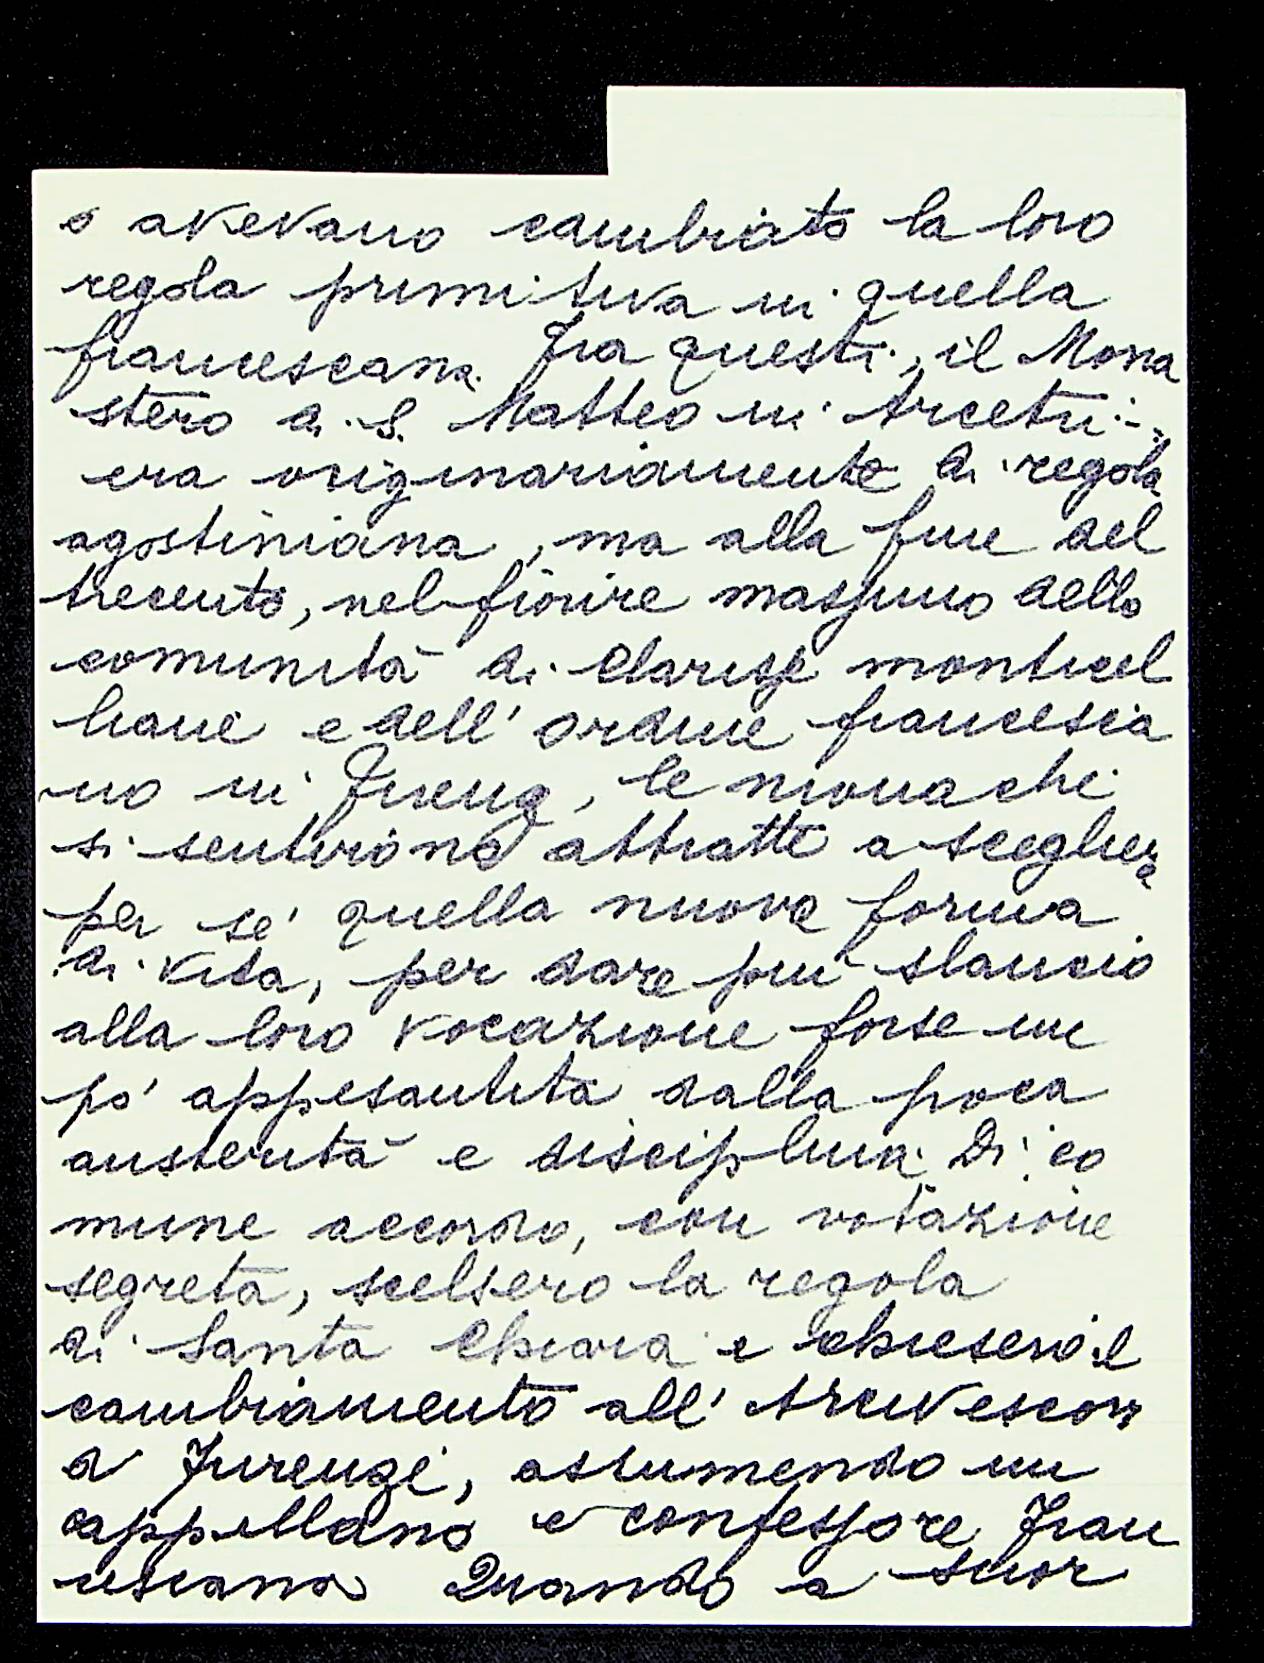 o avevano cambiato la loro
regola primitiva in quella
francescana. Fra questi, il Mona
stero di S. Matteo in Arcetri:
era originariamente di regola
agostiniana, ma alla fine del
trecento, nel fiorire massimo della
comunità di Clarisse monticel
liane e dell'ordine francesca
no in Firenze, le monache
si sentirono attratte a scegliere
per sé quella nuova forma
di vita, per dare più slancio
alla loro vocazione forse un
po' appesantita dalla poca
austerità e disciplina. Di co
mune accordo, con votazione
segreta, scelsero la regola
di Santa Chiara e chiesero il
cambiamento all'Arcivescovo
di Firenze, assumendo un
cappellano e confessore Fran
cescano. Quando a suor